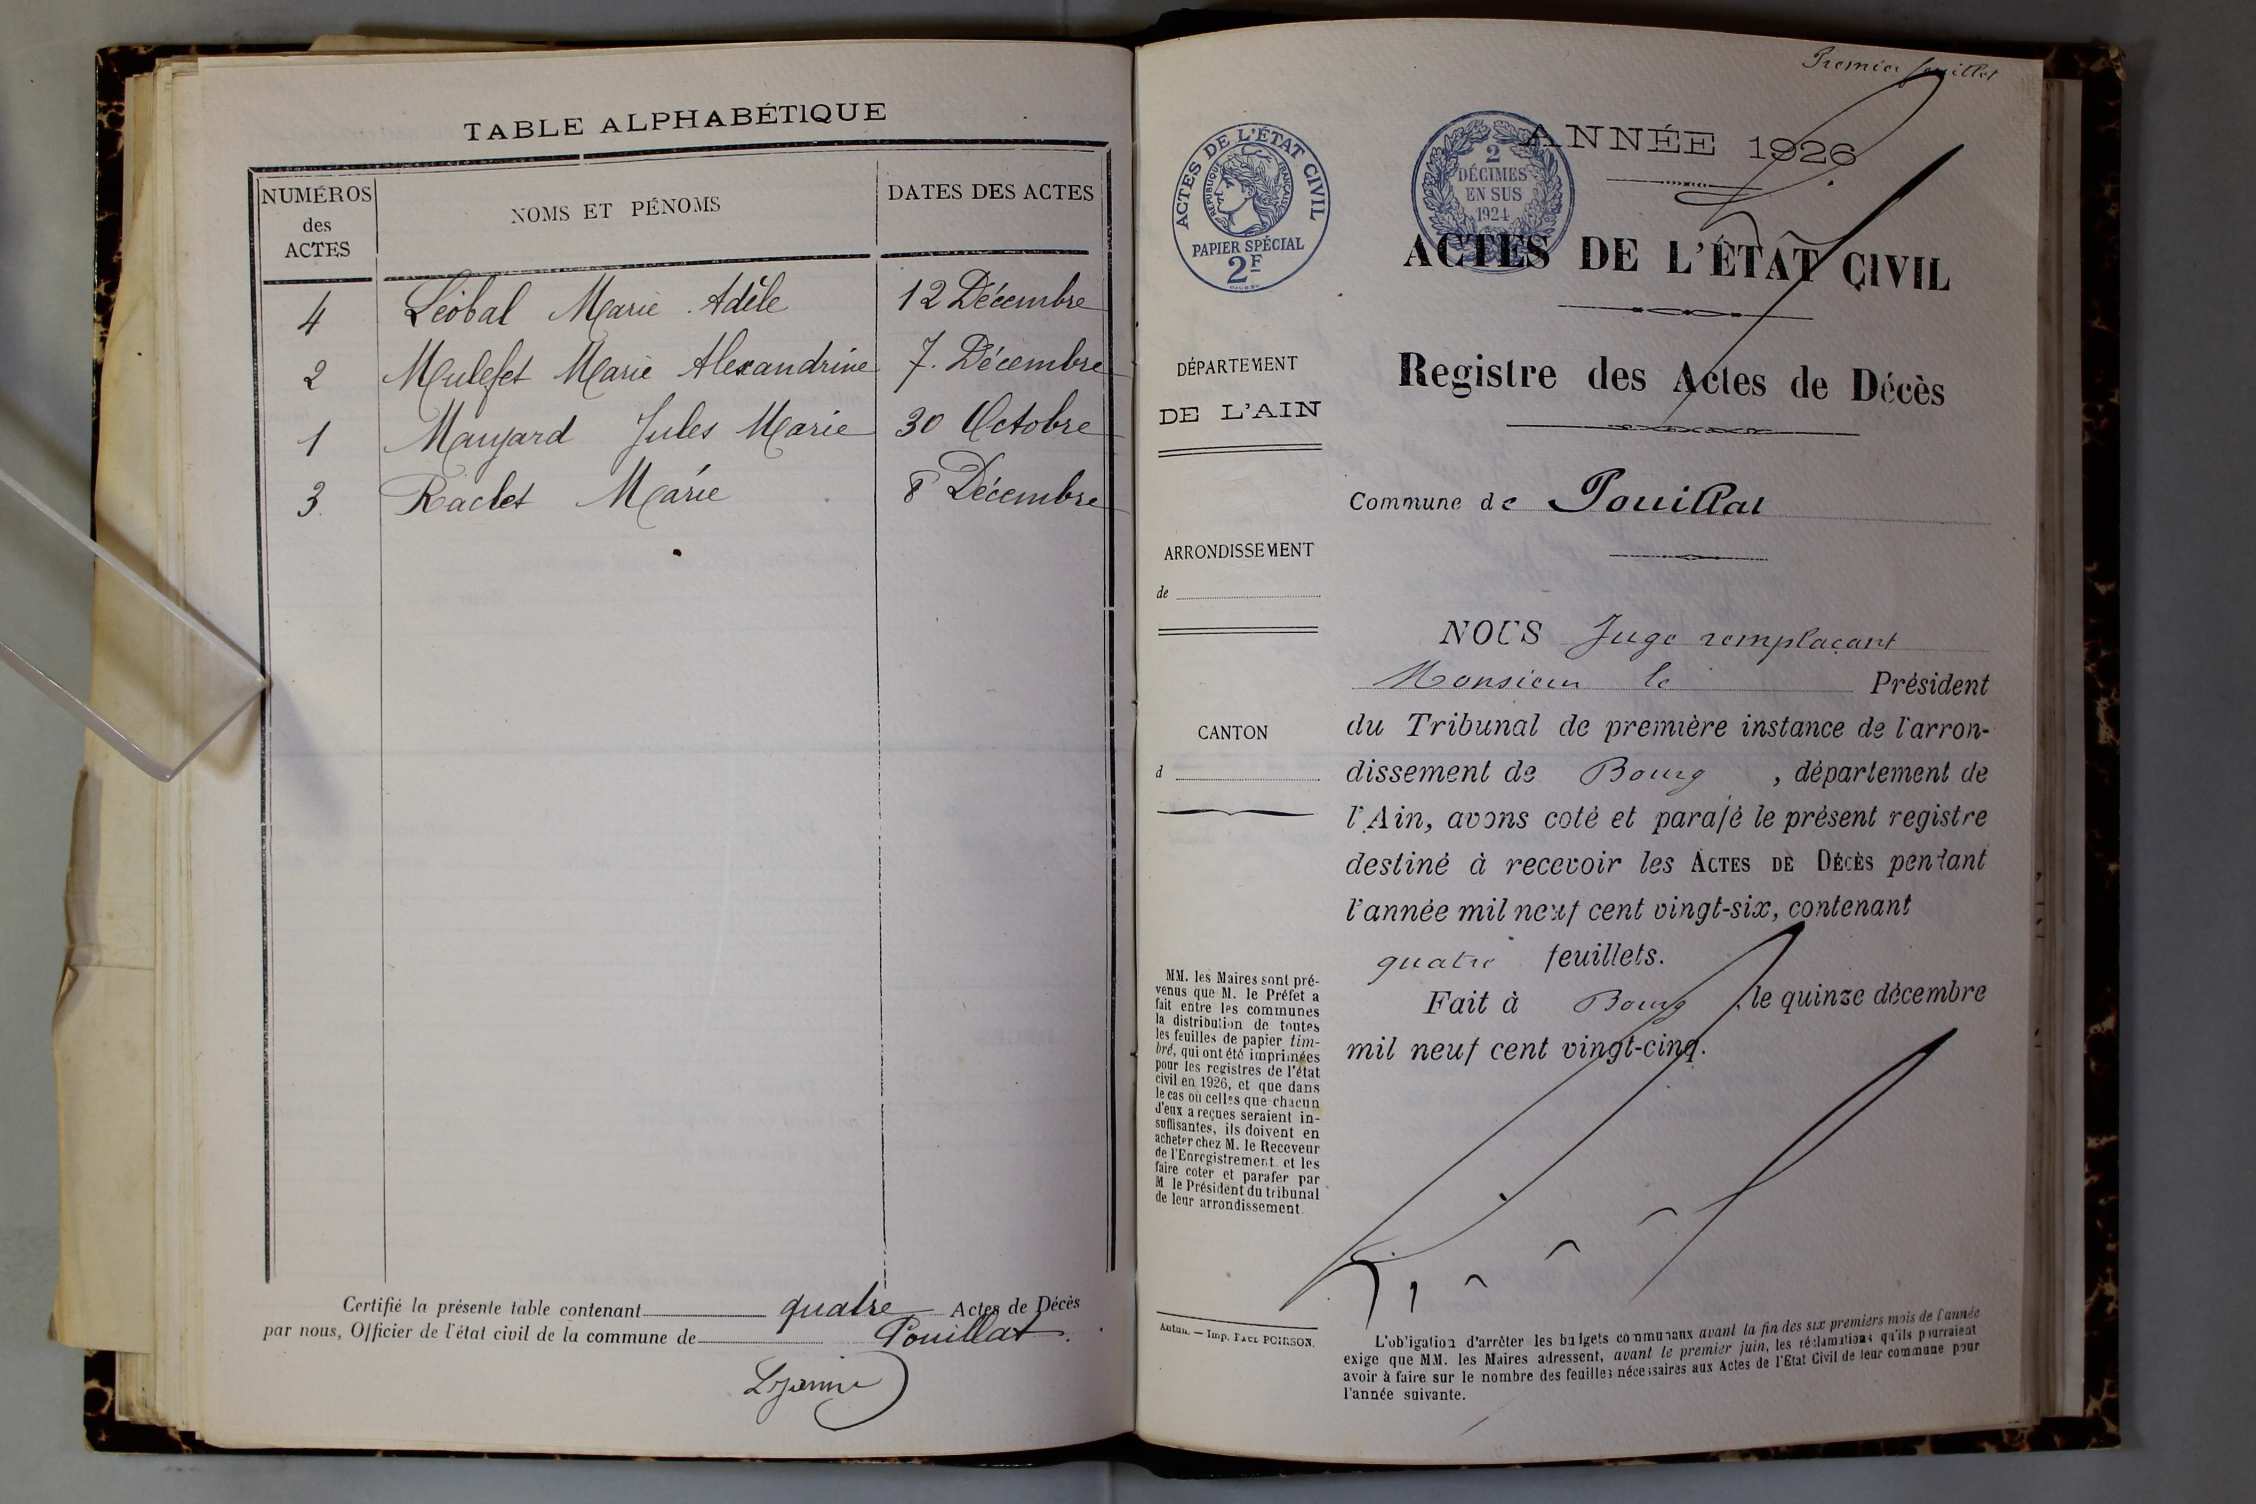 TABLE ALPHABÉTIQUE
NUMÉROS
des
ACTES
NOMS ET PÉNOMS
DATES DES ACTES
4 Léobal Marie Adèle 12 Décembre
2 Mulefet Marie Alexandrine 7. Décembre
1 Maygard Jules Marie 30 Octobre
3 Raclet Marie 8 Décembre
Certifié la présente table contenant quatre Actes de Décès
par nous, Officier de l'état civil de la commune de Pouillat.
Premier feuillet
ACTES DE L'ÉTAT CIVIL
RÉPUBLIQUE FRANÇAISE
PAPIER SPÉCIAL
2F
2
DÉCIMES
EN SUS
1924
ANNÉE 1926
ACTES DE L'ÉTAT CIVIL
Registre des Actes de Décès
Commune de Pouillat
DÉPARTEMENT
DE L'AIN
ARRONDISSEMENT
de
CANTON
d
MM. les Maires sont pré-
venus que M. le Préfet a
fait entre les communes
la distribution de toutes
les feuilles de papier tim-
bré, qui ont été imprimées
pour les registres de l'état
civil en 1926, et que dans
le cas où celles que chacun
d'eux a reçues seraient in-
suffisantes, ils doivent en
acheter chez M. le Receveur
de l'Enregistrement et les
faire coter et parafer par
M le Président du tribunal
de leur arrondissement.
Autun. — Imp. PAUL POIRSON.
NOUS Juge remplaçant
Monsieur le Président
du Tribunal de première instance de l'arron-
dissement de Bourg, département de
l'Ain, avons coté et parafé le présent registre
destiné à recevoir les ACTES DE DÉCÈS pendant
l'année mil neuf cent vingt-six, contenant
quatre feuillets.
Fait à Bourg, le quinze décembre
mil neuf cent vingt-cinq.
L'obligation d'arrêter les budgets communaux avant la fin des six premiers mois de l'année
exige que MM. les Maires adressent, avant le premier juin, les réclamations qu'ils pourraient
avoir à faire sur le nombre des feuilles nécessaires aux Actes de l'Etat Civil de leur commune pour
l'année suivante.